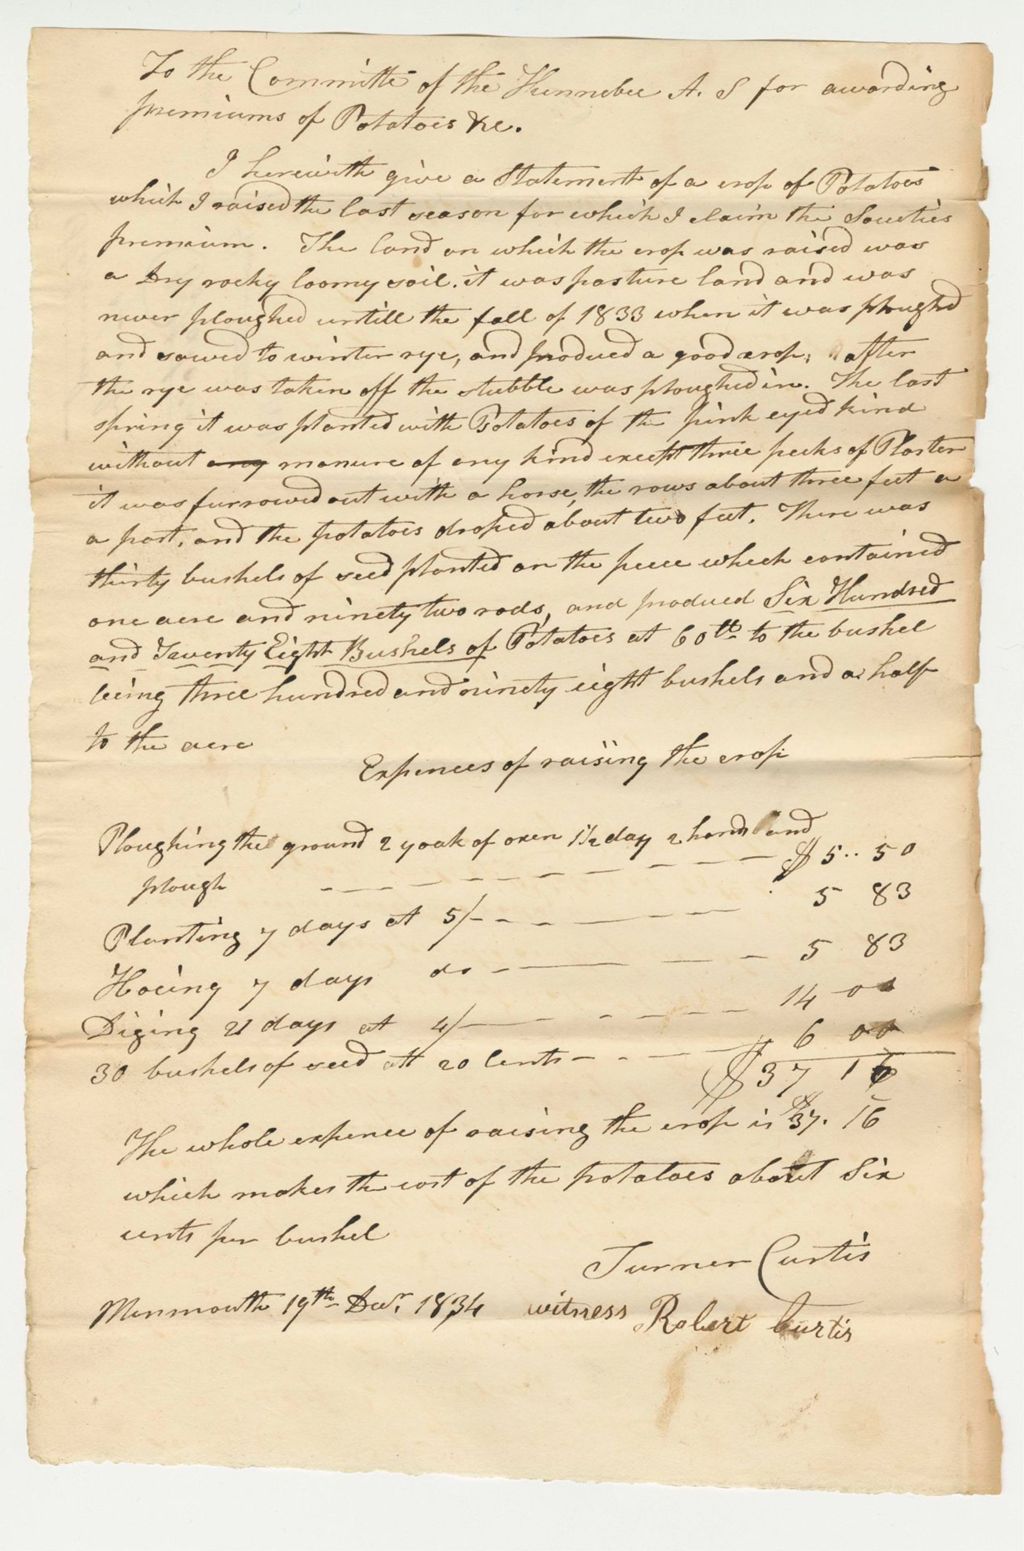 To the Committe of the Kennebec A. S for awarding
premiums of Potatoes &c.
I herewith give a Statement of a crop of Potatoes
which I raised the last season for which I claim the Societies
premium. The land on which the crop was raised was
a Dry rocky loomy soil. it was pasture land and was
never ploughed untill the fall of 1833 when it was ploughed
and sowed to winter rye, and produced a good crop; after
the rye was taken off the stubble was ploughed in. The last
spring it was planted with Potatoes of the pink eyed kind
without any manure of any kind except three pecks of Plaster
it was furrowed out with a horse, the rows about three feet a
a part, and the potatoes droped about two feet. There was
thirty bushels of seed planted on the piece which contained
one acre and ninety two rods, and produced Six Hundred
and Twenty Eight Bushels of Potatoes at 60 lb to the bushel
being three hundred and ninety eight bushels and a half
to the acre
Expences of raising the crop
Ploughing the ground 2 yoak of oxen 1 1/2 day 2 hands and
plough $ 5.. 50
Planting 7 days at 5/ 5 83
Hoeing 7 days do 5 83
Diging 21 days at 4/ 14 00
30 bushels of seed att 20 Cents 6 00
$ 37 16
The whole expence of raising the crop is $37. 16
which makes the cost of the potatoes about Six
cents per bushel
Turner Curtis
Monmouth 19th Decr. 1834 witness Robert Curtis